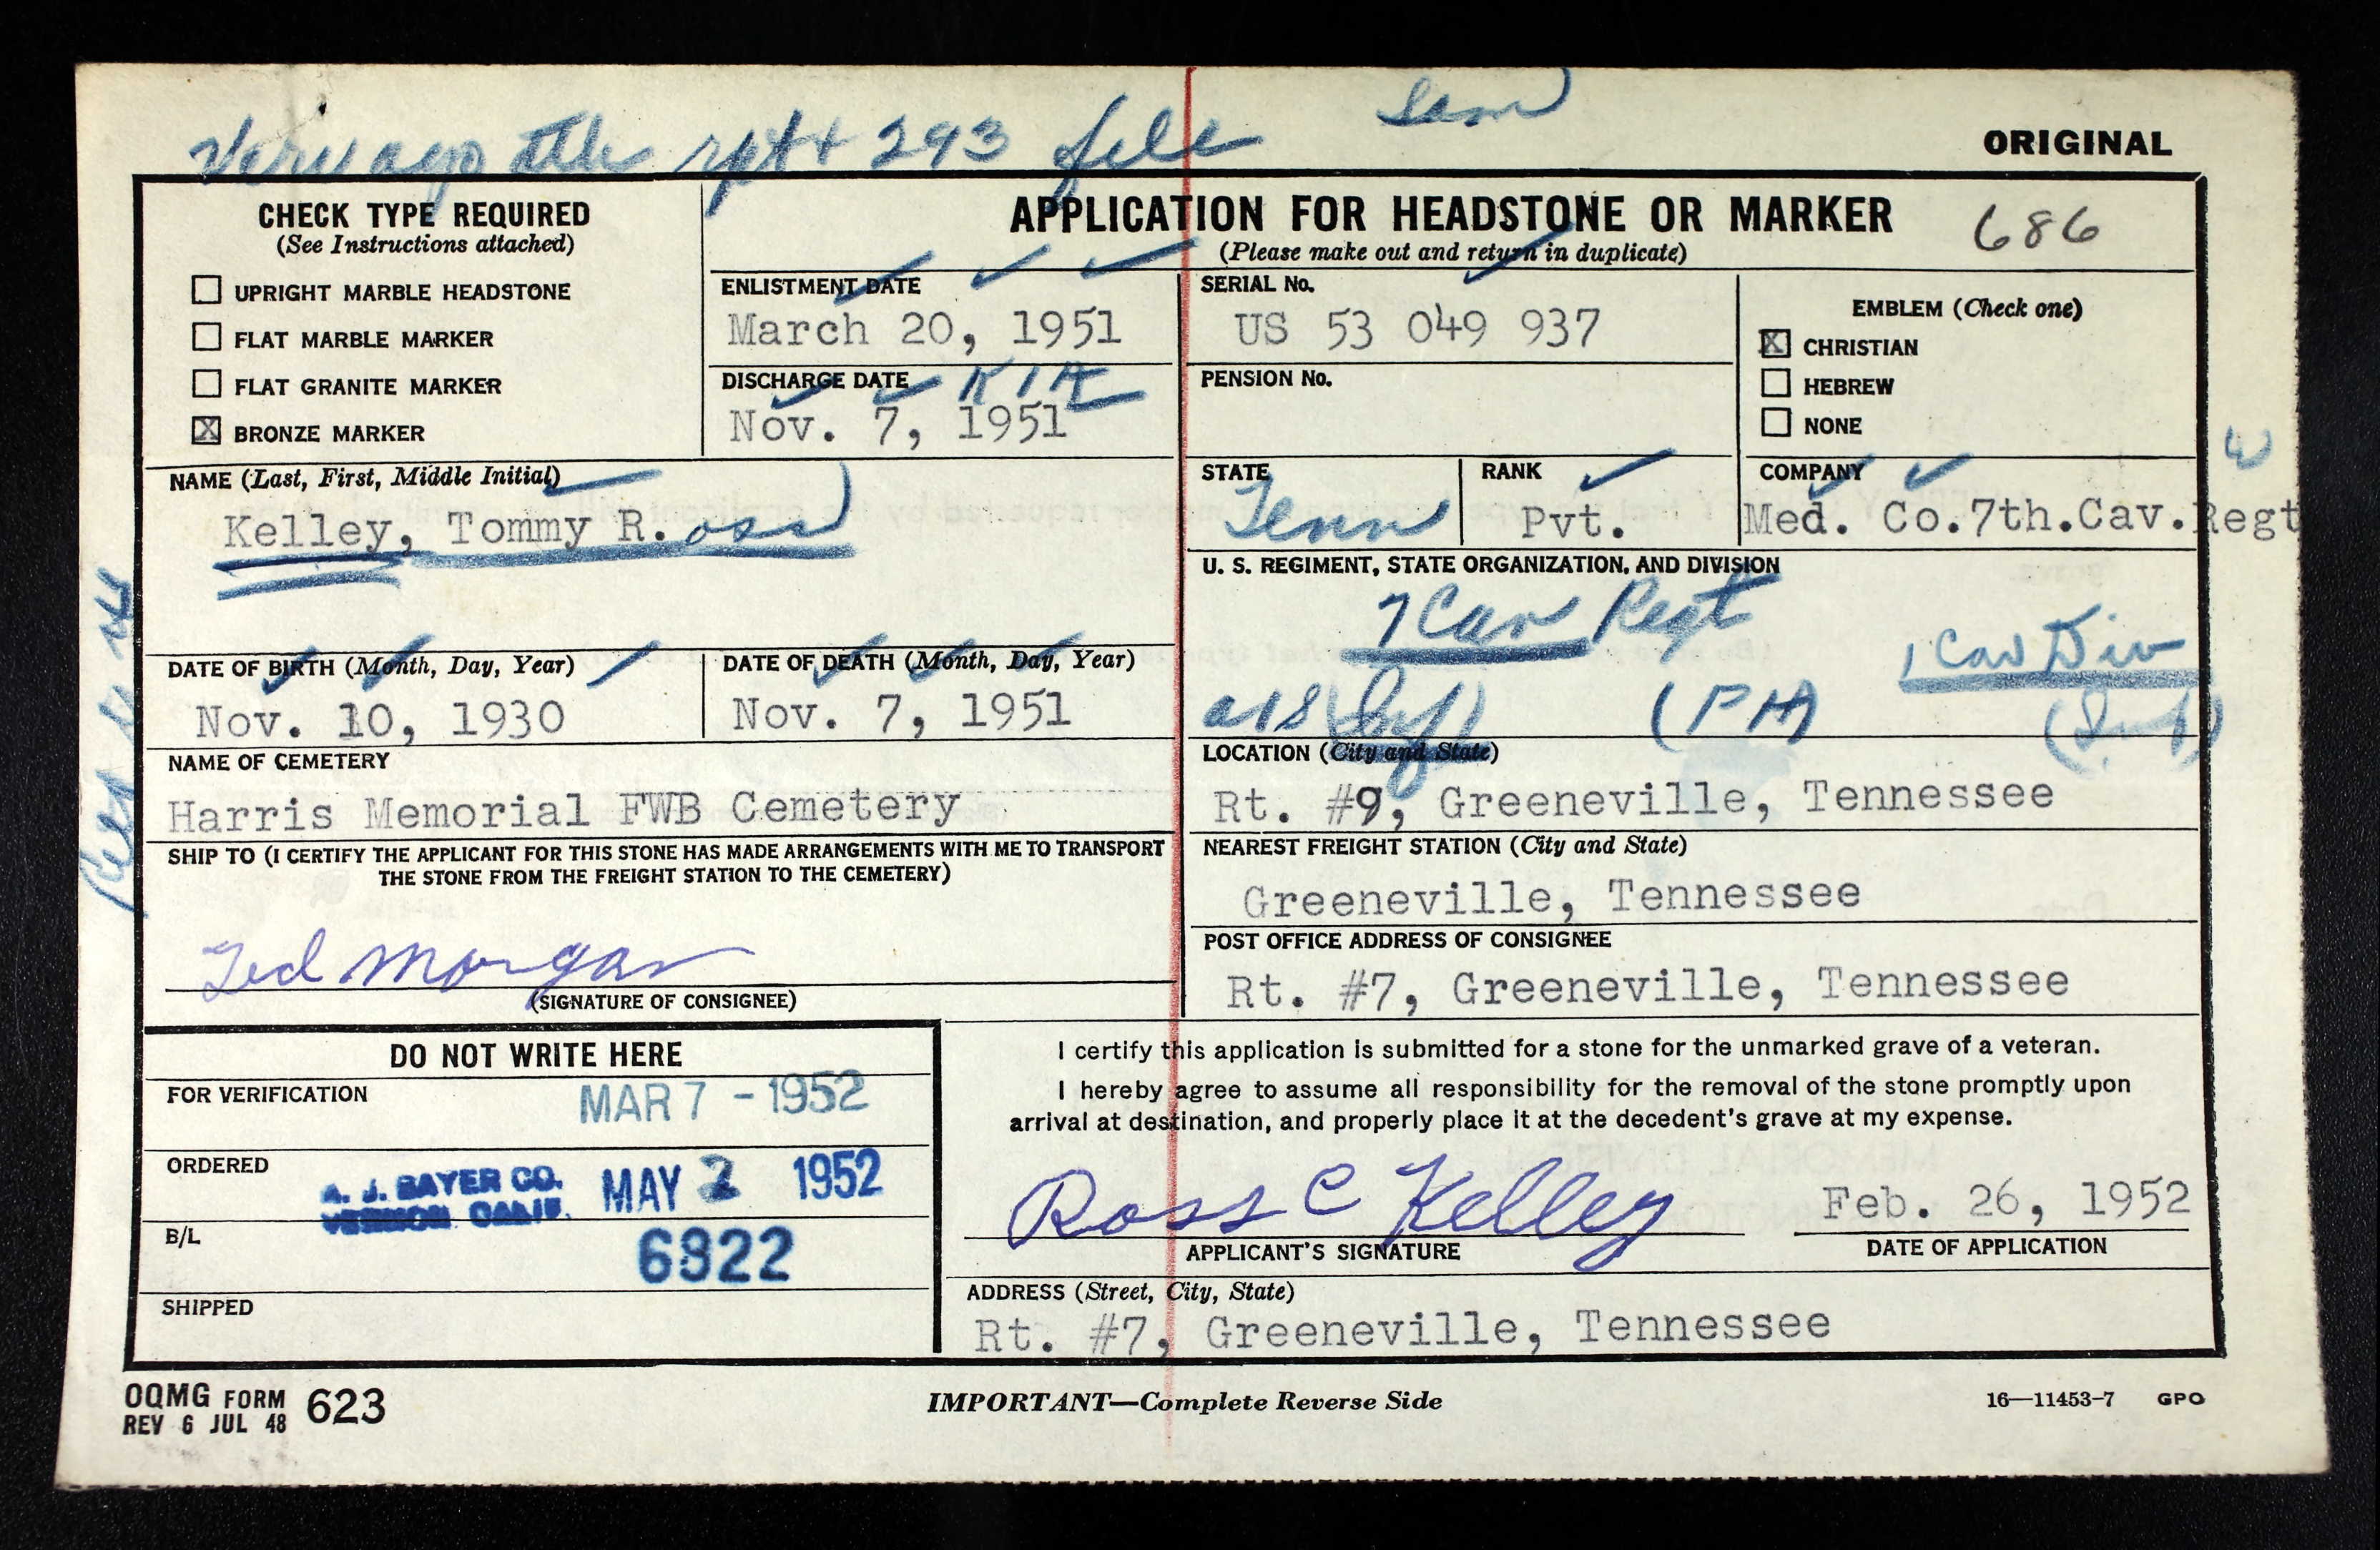 rpt + 293 file
ORIGINAL
CHECK TYPE REQUIRED
(See Instructions attached)
☐ UPRIGHT MARBLE HEADSTONE
☐ FLAT MARBLE MARKER
☐ FLAT GRANITE MARKER
☒ BRONZE MARKER
APPLICATION FOR HEADSTONE OR MARKER
686
(Please make out and return in duplicate)
ENLISTMENT DATE
March 20, 1951
DISCHARGE DATE KIA
Nov. 7, 1951
SERIAL No.
US 53 049 937
PENSION No.
EMBLEM (Check one)
☒ CHRISTIAN
☐ HEBREW
☐ NONE
NAME (Last, First, Middle Initial)
Kelley, Tommy R.oss
STATE
Tenn
RANK
Pvt.
COMPANY
Med. Co.7th.Cav.Regt
U. S. REGIMENT, STATE ORGANIZATION, AND DIVISION
7 Cav Regt
1 Cav Div
(PH)
DATE OF BIRTH (Month, Day, Year)
Nov. 10, 1930
DATE OF DEATH (Month, Day, Year)
Nov. 7, 1951
NAME OF CEMETERY
Harris Memorial FWB Cemetery
LOCATION (City and State)
Rt. #9, Greeneville, Tennessee
SHIP TO (I CERTIFY THE APPLICANT FOR THIS STONE HAS MADE ARRANGEMENTS WITH ME TO TRANSPORT
THE STONE FROM THE FREIGHT STATION TO THE CEMETERY)
Ted Morgan
(SIGNATURE OF CONSIGNEE)
NEAREST FREIGHT STATION (City and State)
Greeneville, Tennessee
POST OFFICE ADDRESS OF CONSIGNEE
Rt. #7, Greeneville, Tennessee
DO NOT WRITE HERE
FOR VERIFICATION
MAR 7 - 1952
ORDERED
A. J. BAYER CO.
VERNON CALIF.
MAY 2 1952
B/L
6822
SHIPPED
I certify this application is submitted for a stone for the unmarked grave of a veteran.
I hereby agree to assume all responsibility for the removal of the stone promptly upon
arrival at destination, and properly place it at the decedent's grave at my expense.
Ross C Kelley
APPLICANT'S SIGNATURE
Feb. 26, 1952
DATE OF APPLICATION
ADDRESS (Street, City, State)
Rt. #7, Greeneville, Tennessee
OQMG FORM 623
REV 6 JUL 48
IMPORTANT—Complete Reverse Side
16—11453-7 GPO